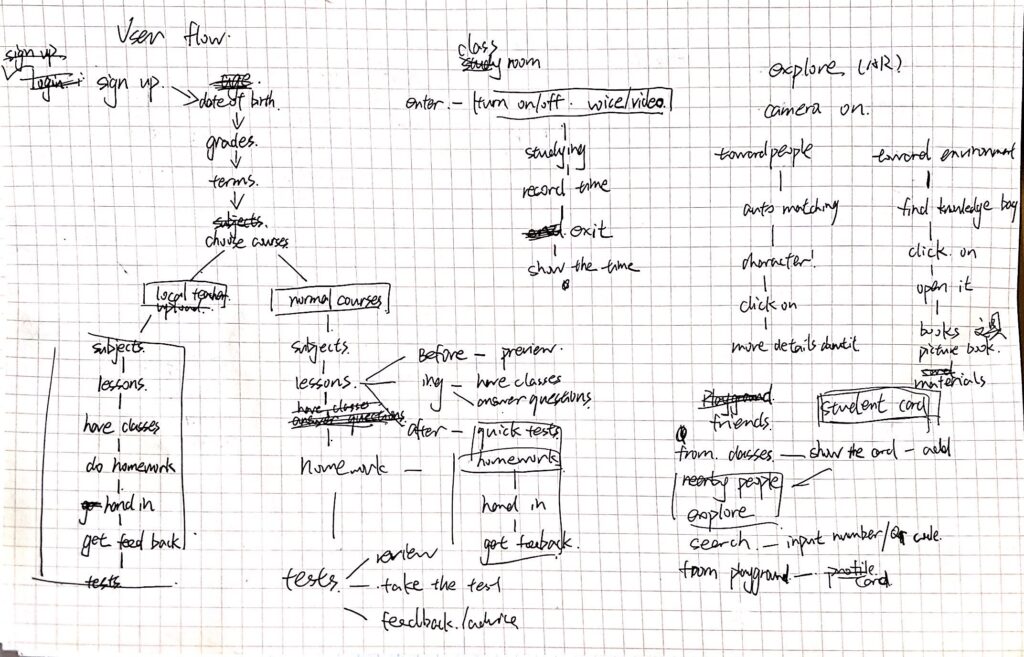 User flow.
sign up.
login
sign up.
age.
date of birth.
grades.
terms.
subjects.
choose courses
local teacher.
upload.
subjects.
lessons.
have classes
do homework
go hand in
get feed back.
tests
normal courses
subjects.
lessons.
have classes
answer questions
homework
Before — preview.
ing — have classes
answer questions
after — quick tests
homework
hand in
get feeback.
tests
review
take the test
feedback/advice
class
study room
enter. — turn on/off. voice/video.
studying
record time
exit
show the time
explore (AR)
camera on.
toward people
auto matching
character!
click on
more details about it
toward environment
find knuledge bag
click on
open it
books
picture book.
materials
Playground
friends.
student card
from classes — show the card — add
nearby people
explore
search — input number/QR code.
from playground — profile
card